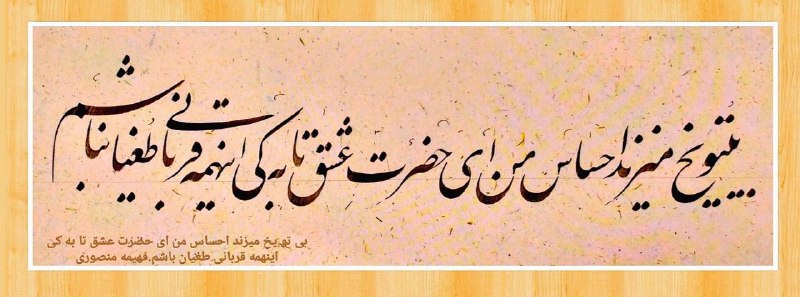 بیتویخ میزند احساس من ای حضرت عشق تا به کی اینهمه قربانی طغیان باشم
بی تو یخ میزند احساس من ای حضرت عشق تا به کی
اینهمه قربانی طغیان باشم.فهیمه منصوری